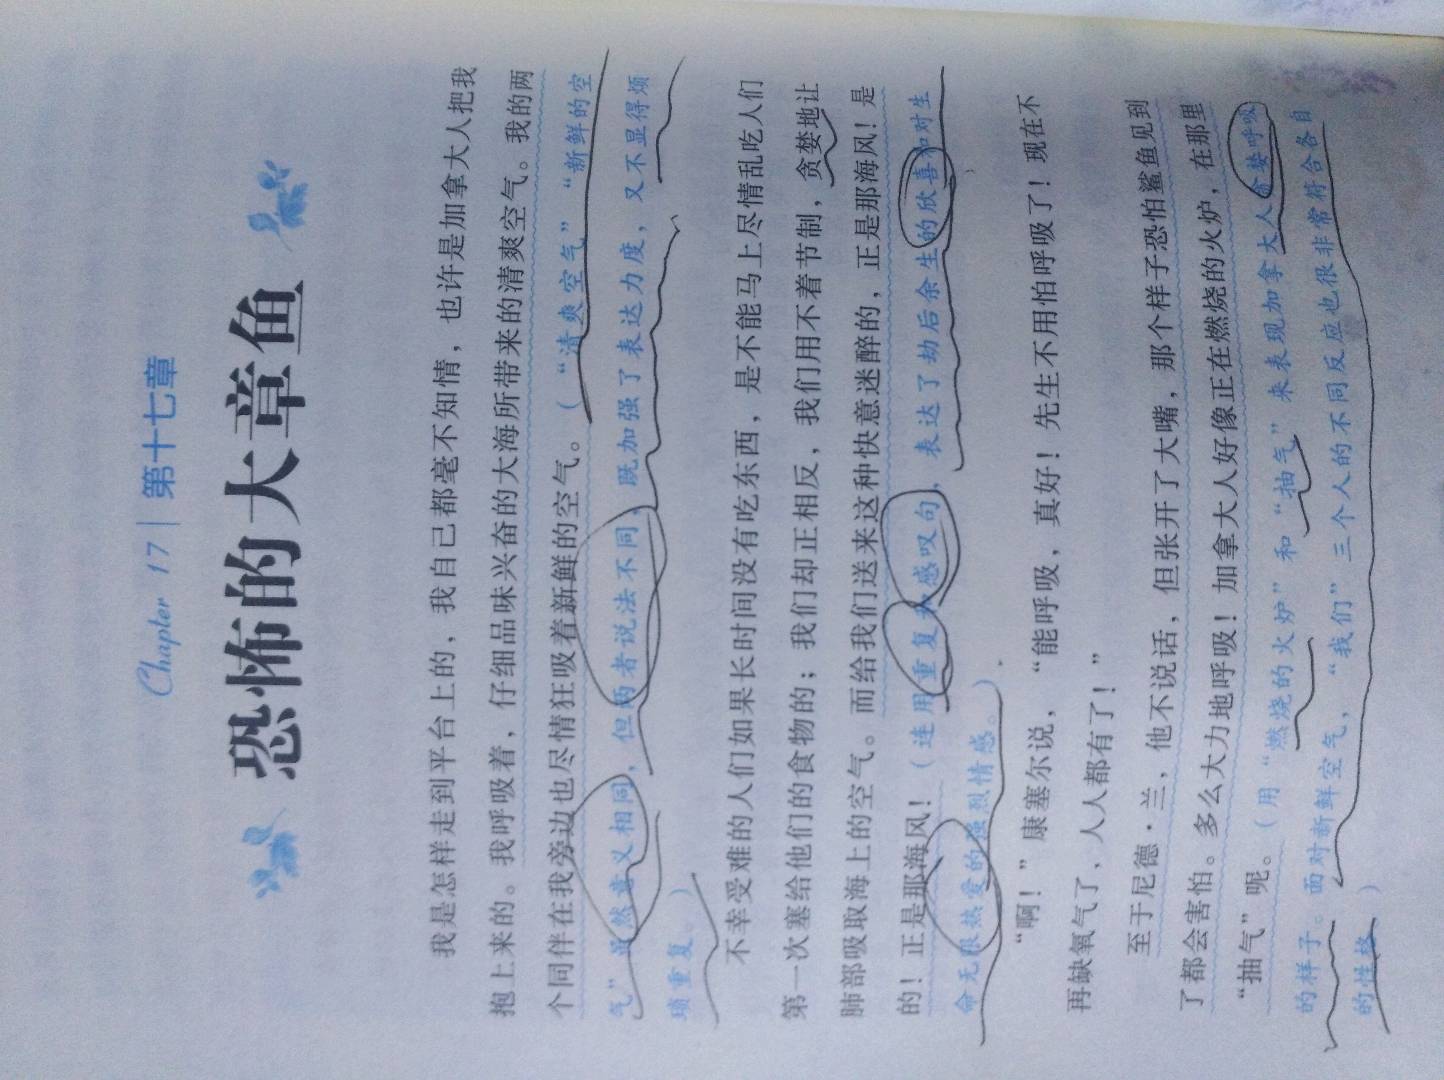 Chapter 17 | 第十七章
恐怖的大章鱼
我是怎样走到平台上的，我自己都毫不知情，也许是加拿大人把我
抱上来的。我呼吸着，仔细品味兴奋的大海所带来的清爽空气。我的两
个同伴在我旁边也尽情狂吸着新鲜的空气。（“清爽空气”“新鲜的空
气”虽然意义相同，但两者说法不同，既加强了表达力度，又不显得烦
琐重复。）
不幸受难的人们如果长时间没有吃东西，是不能马上尽情乱吃人们
第一次塞给他们的食物的；我们却正相反，我们用不着节制，贪婪地让
肺部吸取海上的空气。而给我们送来这种快意迷醉的，正是那海风！是
的！正是那海风！（连用重复和感叹句，表达了劫后余生的欣喜和对生
命无限热爱的强烈情感。）
“啊！”康塞尔说，“能呼吸，真好！先生不用怕呼吸了！现在不
再缺氧气了，人人都有了！”
至于尼德·兰，他不说话，但张开了大嘴，那个样子恐怕鲨鱼见到
了都会害怕。多么大力地呼吸！加拿大人好像正在燃烧的火炉，在那里
“抽气”呢。（用“燃烧的火炉”和“抽气”来表现加拿大人贪婪呼吸
的样子。面对新鲜空气，“我们”三个人的不同反应也很非常符合各自
的性格）